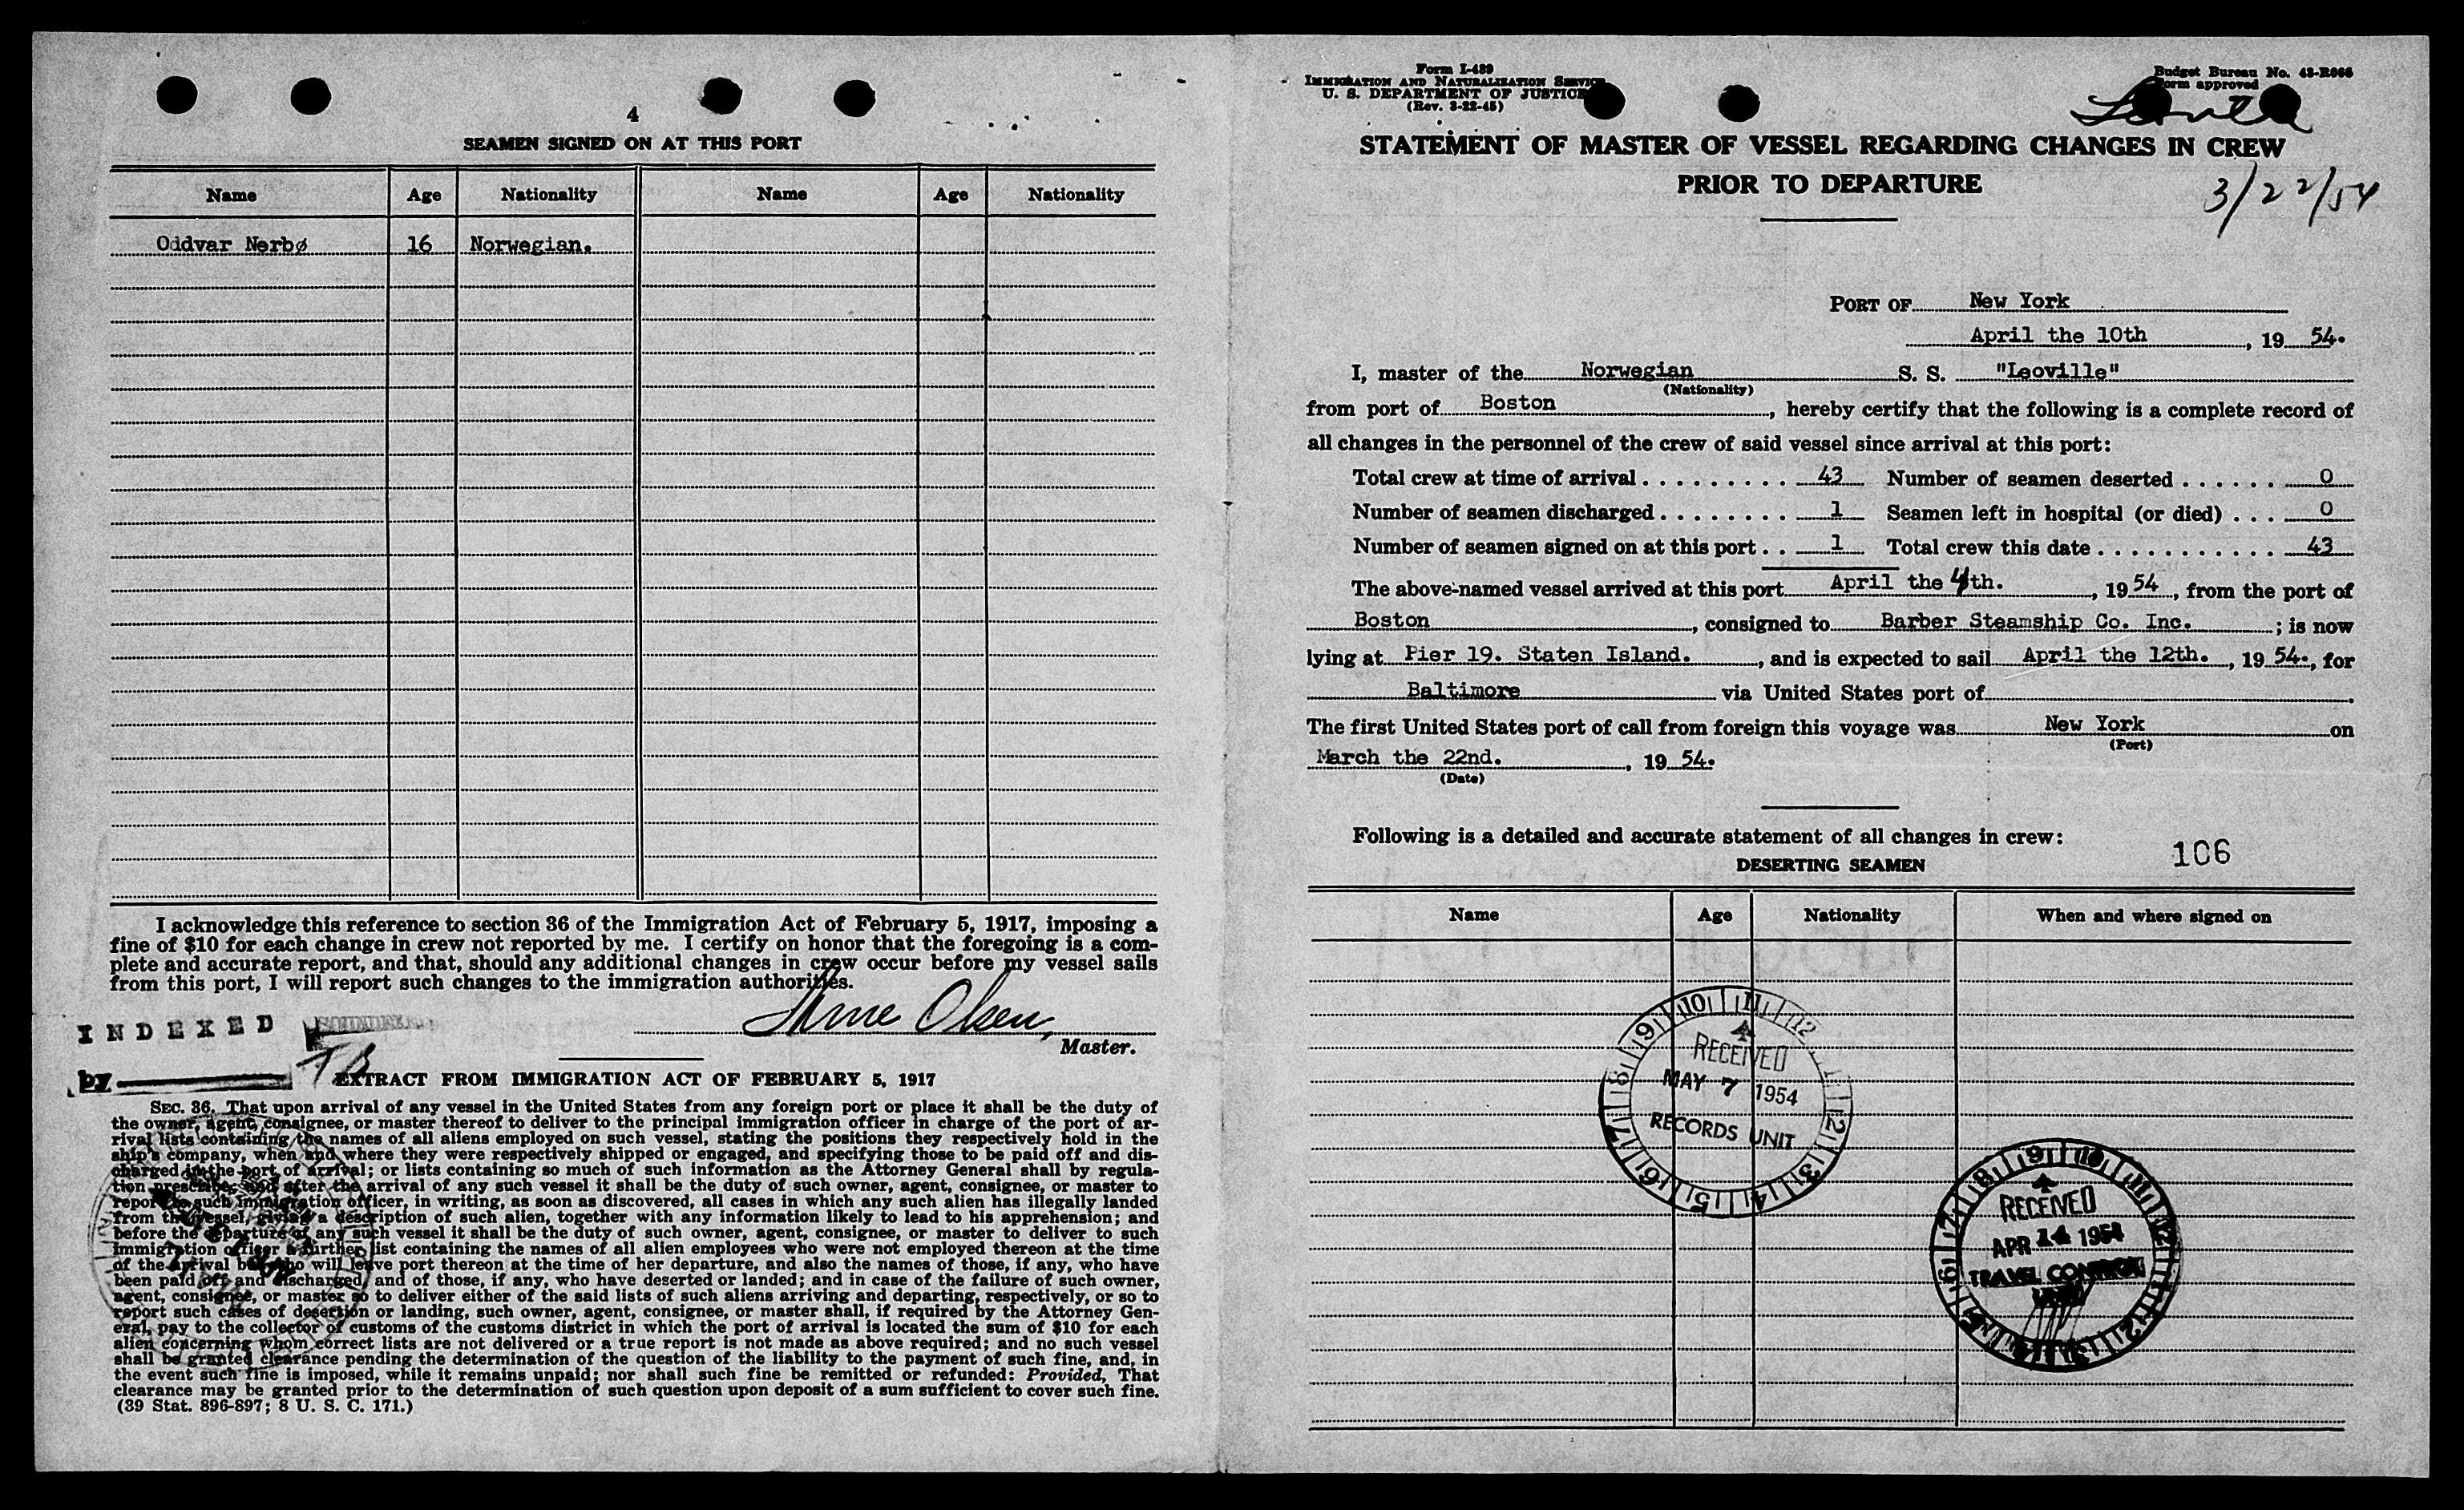 4
SEAMEN SIGNED ON AT THIS PORT
Name Age Nationality Name Age Nationality
Oddvar Nerbø 16 Norwegian.
I acknowledge this reference to section 36 of the Immigration Act of February 5, 1917, imposing a
fine of $10 for each change in crew not reported by me. I certify on honor that the foregoing is a com-
plete and accurate report, and that, should any additional changes in crew occur before my vessel sails
from this port, I will report such changes to the immigration authorities.
Arne Olsen,
Master.
INDEXED
BY
EXTRACT FROM IMMIGRATION ACT OF FEBRUARY 5, 1917
SEC. 36. That upon arrival of any vessel in the United States from any foreign port or place it shall be the duty of
the owner, agent, consignee, or master thereof to deliver to the principal immigration officer in charge of the port of ar-
rival lists containing the names of all aliens employed on such vessel, stating the positions they respectively hold in the
ship's company, when and where they were respectively shipped or engaged, and specifying those to be paid off and dis-
charged in the port of arrival; or lists containing so much of such information as the Attorney General shall by regula-
tion prescribe; and after the arrival of any such vessel it shall be the duty of such owner, agent, consignee, or master to
report to such immigration officer, in writing, as soon as discovered, all cases in which any such alien has illegally landed
from the vessel, giving a description of such alien, together with any information likely to lead to his apprehension; and
before the departure of any such vessel it shall be the duty of such owner, agent, consignee, or master to deliver to such
immigration officer a further list containing the names of all alien employees who were not employed thereon at the time
of the arrival but who will leave port thereon at the time of her departure, and also the names of those, if any, who have
been paid off and discharged, and of those, if any, who have deserted or landed; and in case of the failure of such owner,
agent, consignee, or master so to deliver either of the said lists of such aliens arriving and departing, respectively, or so to
report such cases of desertion or landing, such owner, agent, consignee, or master shall, if required by the Attorney Gen-
eral, pay to the collector of customs of the customs district in which the port of arrival is located the sum of $10 for each
alien concerning whom correct lists are not delivered or a true report is not made as above required; and no such vessel
shall be granted clearance pending the determination of the question of the liability to the payment of such fine, and, in
the event such fine is imposed, while it remains unpaid; nor shall such fine be remitted or refunded: Provided, That
clearance may be granted prior to the determination of such question upon deposit of a sum sufficient to cover such fine.
(39 Stat. 896-897; 8 U. S. C. 171.)
Form I-489
IMMIGRATION AND NATURALIZATION SERVICE
U. S. DEPARTMENT OF JUSTICE
(Rev. 3-22-45)
Budget Bureau No. 43-R066
Form approved
STATEMENT OF MASTER OF VESSEL REGARDING CHANGES IN CREW
PRIOR TO DEPARTURE
3/22/54
PORT OF New York
April the 10th, 19 54.
I, master of the Norwegian S. S. "Leoville"
(Nationality)
from port of Boston, hereby certify that the following is a complete record of
all changes in the personnel of the crew of said vessel since arrival at this port:
Total crew at time of arrival 43 Number of seamen deserted 0
Number of seamen discharged 1 Seamen left in hospital (or died) 0
Number of seamen signed on at this port 1 Total crew this date 43
The above-named vessel arrived at this port April the 4th., 19 54, from the port of
Boston, consigned to Barber Steamship Co. Inc.; is now
lying at Pier 19. Staten Island., and is expected to sail April the 12th., 19 54., for
Baltimore via United States port of
The first United States port of call from foreign this voyage was New York on
(Port)
March the 22nd., 19 54.
(Date)
Following is a detailed and accurate statement of all changes in crew:
106
DESERTING SEAMEN
Name Age Nationality When and where signed on
RECEIVED
MAY 7 1954
RECORDS UNIT
RECEIVED
APR 14 1954
TRAVEL CONTROL